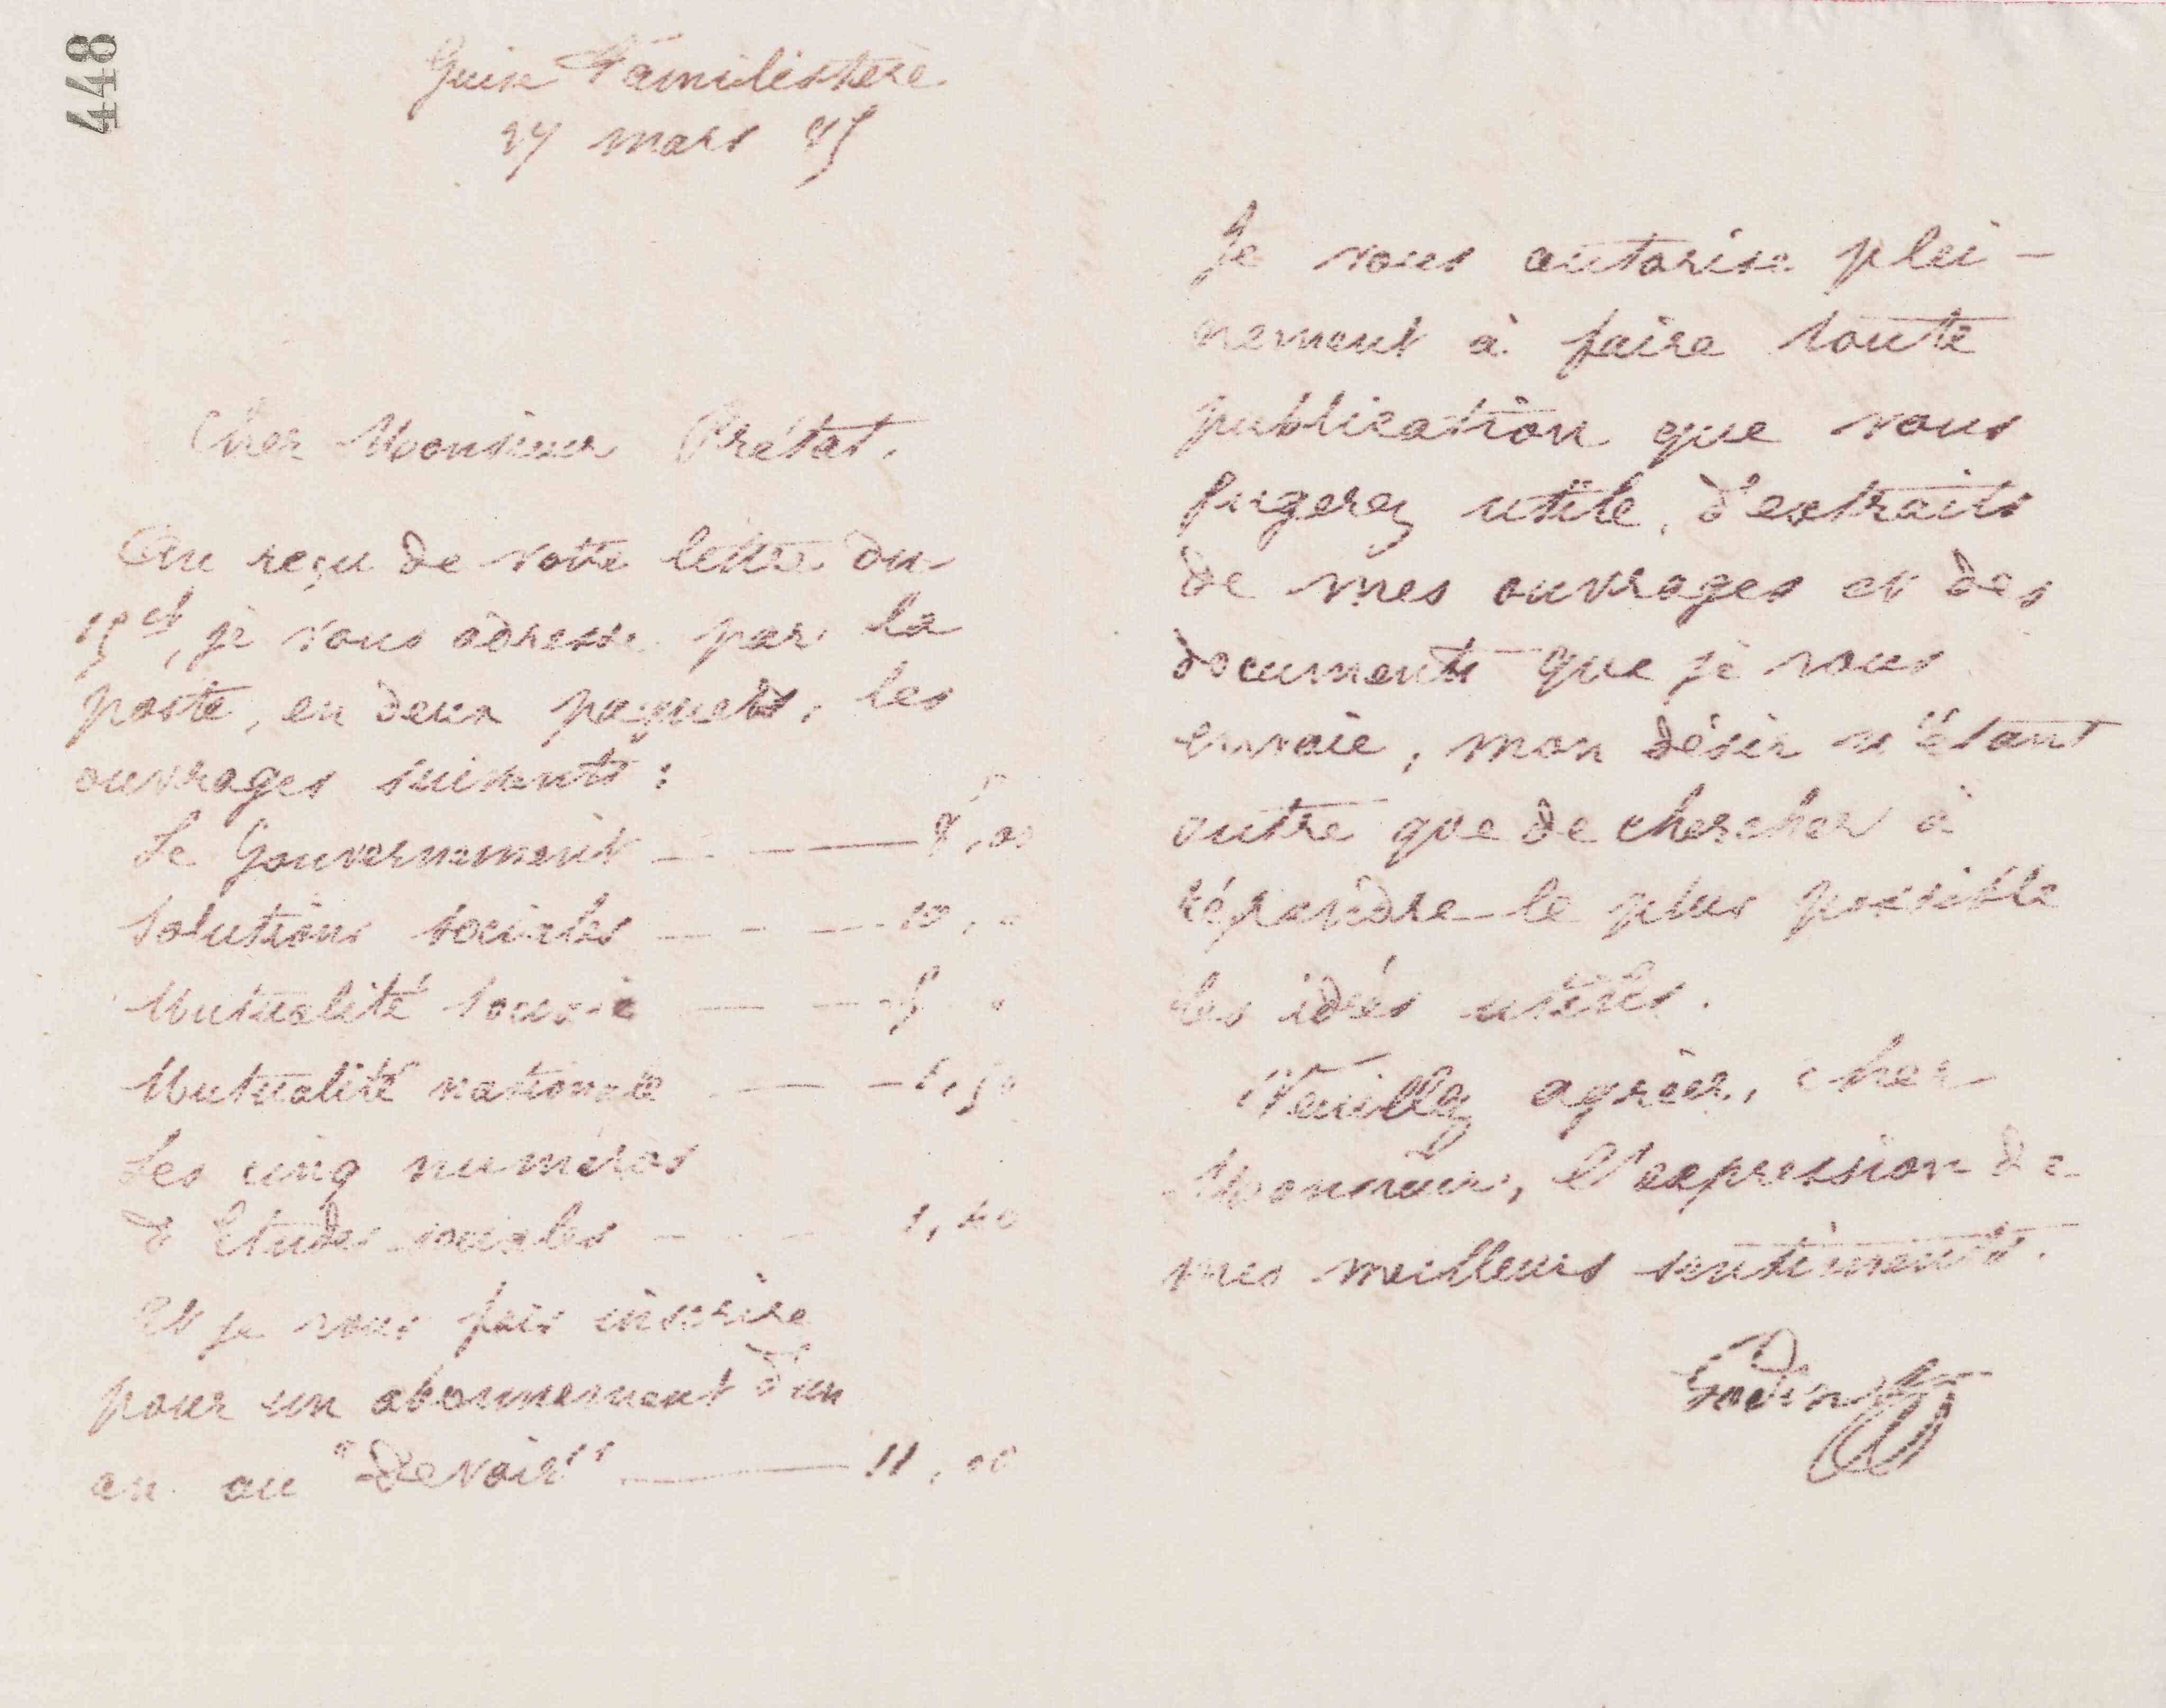 448
Guise Familistère
27 mars 85
Cher Monsieur Prétat,
Au reçu de votre lettre du
15 ct, je vous adresse par la
poste, en deux paquets, les
ouvrages suivants :
Le Gouvernement — 8,00
Solutions sociales — 10, "
Mutualité sociale — 5 "
Mutualité nationale — 1,50
Les cinq numéros
d'Etudes sociales — 1,40
Et je vous fais inscrire
pour un abonnement d'un
an au "Devoir" — 11,00
Je vous autorise plei-
nement à faire toute
publication que vous
jugerez utile, d'extraits
de mes ouvrages et des
documents que je vous
envoie, mon désir n'étant
autre que de chercher à
répandre le plus possible
les idées utiles.
Veuillez agréer, cher
Monsieur, l'expression de
mes meilleurs sentiments.
Godin